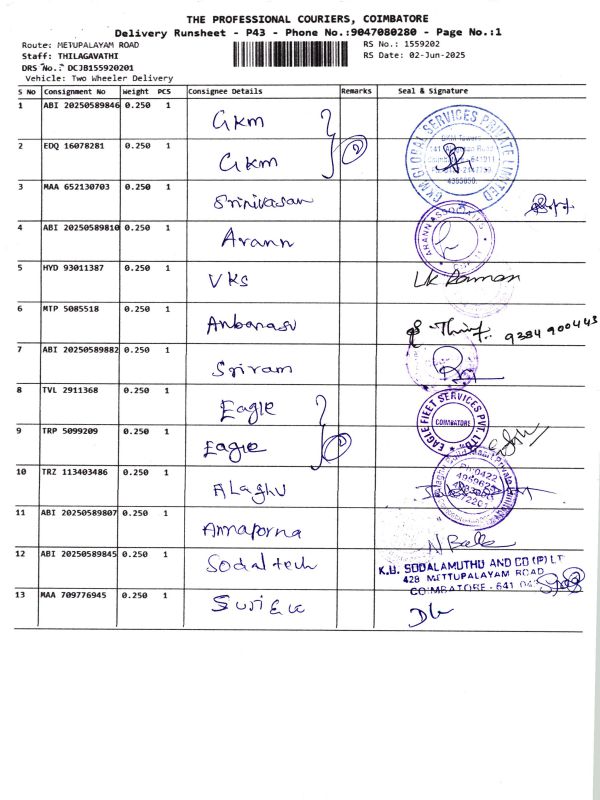 THE PROFESSIONAL COURIERS, COIMBATORE
Delivery Runsheet - P43 - Phone No.:9047080280 - Page No.:1
Route: METUPALAYAM ROAD
RS No.: 1559202
Staff: THILAGAVATHI
RS Date: 02-Jun-2025
DRS No.: DCJB155920201
Vehicle: Two Wheeler Delivery
S No Consignment No Weight PCS Consignee Details Remarks Seal & Signature
1 ABI 20250589846 0.250 1 GKM
2 EDQ 16078281 0.250 1 GKM 2
GKM GLOBAL SERVICES PRIVATE LIMITED
3 MAA 652130703 0.250 1 Srinivasan
4 ABI 20250589810 0.250 1 Arann
ARANN ASSOCIATES
5 HYD 93011387 0.250 1 VKS
6 MTP 5085518 0.250 1 Anbarasu
9384900443
7 ABI 20250589882 0.250 1 Sriram
8 TVL 2911368 0.250 1 Eagle
EAGLE FLEET SERVICES PVT. LTD.
COIMBATORE
9 TRP 5099209 0.250 1 Eagle
10 TRZ 113403486 0.250 1 ALaghu
Ph:0422
11 ABI 20250589807 0.250 1 Annaporna
12 ABI 20250589845 0.250 1 Sodaltech
K.U. SODALAMUTHU AND CO (P) LT
428 METTUPALAYAM ROAD
COIMBATORE - 641 04
13 MAA 709776945 0.250 1